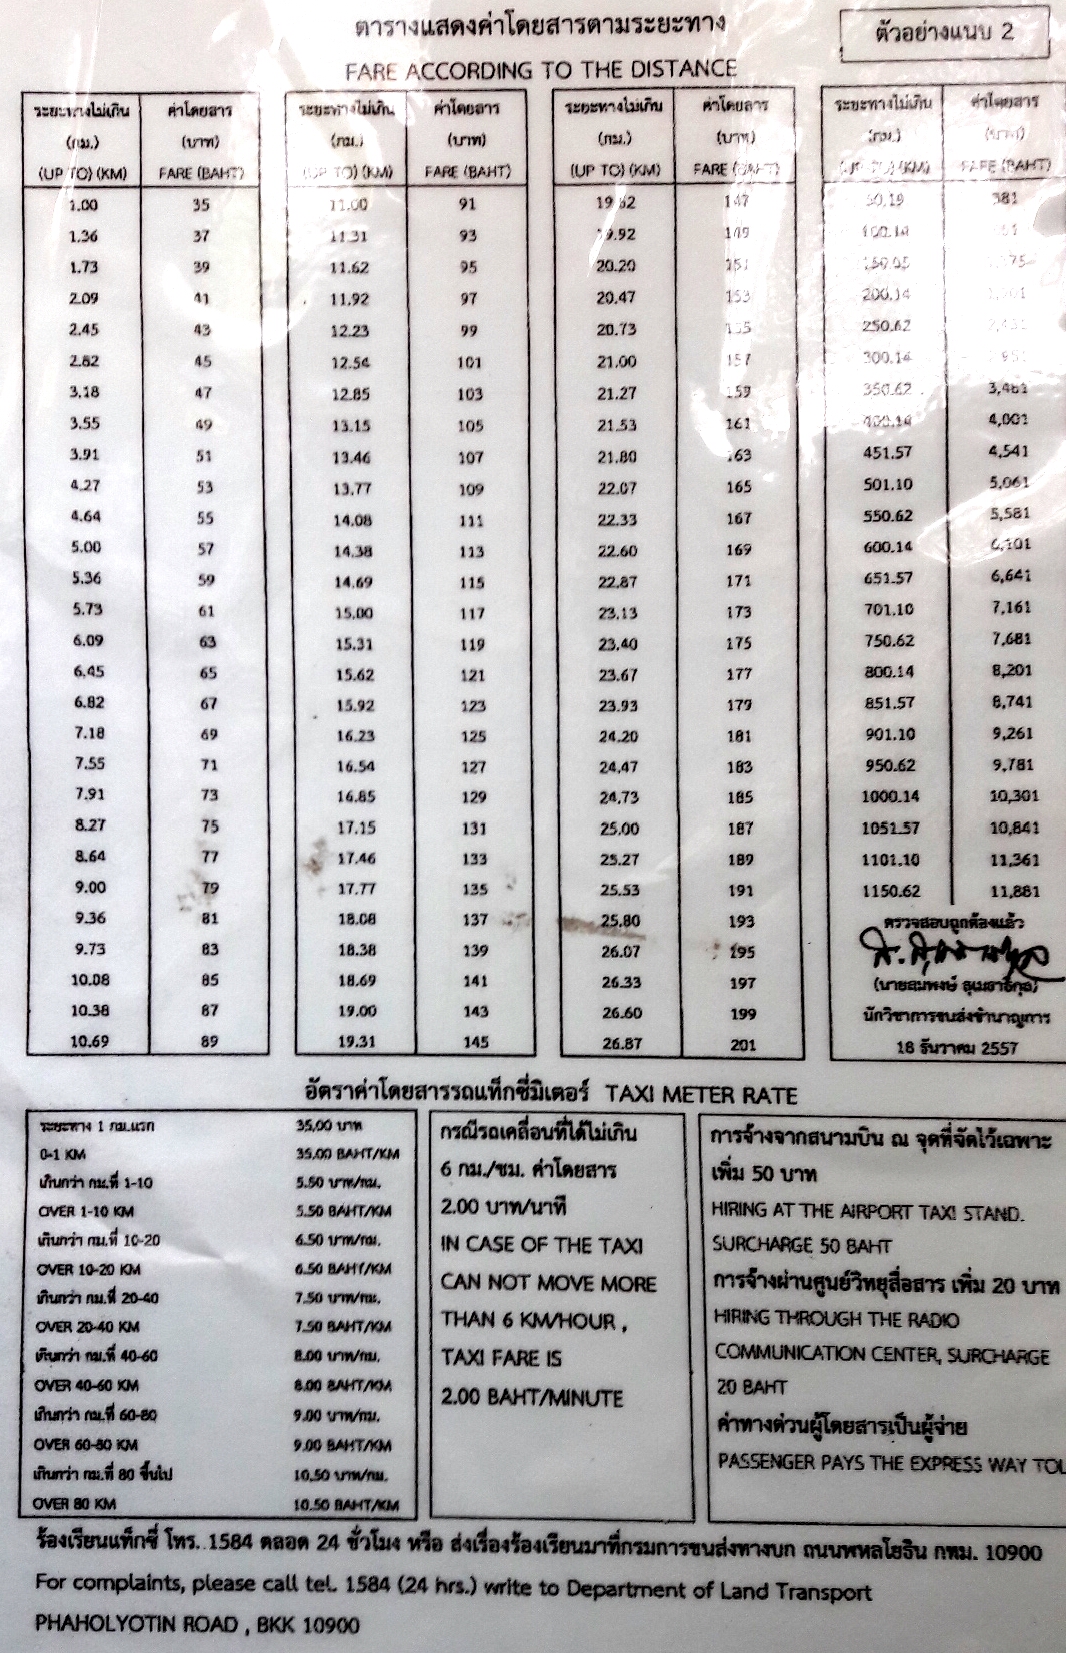 ตารางแสดงค่าโดยสารตามระยะทาง
ตัวอย่างแนบ 2
FARE ACCORDING TO THE DISTANCE
ระยะทางไม่เกิน ค่าโดยสาร ระยะทางไม่เกิน ค่าโดยสาร ระยะทางไม่เกิน ค่าโดยสาร ระยะทางไม่เกิน ค่าโดยสาร
(กม.) (บาท) (กม.) (บาท) (กม.) (บาท) (กม.) (บาท)
(UP TO) (KM) FARE (BAHT) (UP TO) (KM) FARE (BAHT) (UP TO) (KM) FARE (BAHT) (UP TO) (KM) FARE (BAHT)
1.00 35 11.00 91 19.62 147 50.19 381
1.36 37 11.31 93 19.92 149 100.14
1.73 39 11.62 95 20.20 151 150.05
2.09 41 11.92 97 20.47 153 200.14
2.45 43 12.23 99 20.73 155 250.62
2.82 45 12.54 101 21.00 157 300.14
3.18 47 12.85 103 21.27 159 350.62 3,481
3.55 49 13.15 105 21.53 161 400.14 4,001
3.91 51 13.46 107 21.80 163 451.57 4,541
4.27 53 13.77 109 22.07 165 501.10 5,061
4.64 55 14.08 111 22.33 167 550.62 5,581
5.00 57 14.38 113 22.60 169 600.14 6,101
5.36 59 14.69 115 22.87 171 651.57 6,641
5.73 61 15.00 117 23.13 173 701.10 7,161
6.09 63 15.31 119 23.40 175 750.62 7,681
6.45 65 15.62 121 23.67 177 800.14 8,201
6.82 67 15.92 123 23.93 179 851.57 8,741
7.18 69 16.23 125 24.20 181 901.10 9,261
7.55 71 16.54 127 24.47 183 950.62 9,781
7.91 73 16.85 129 24.73 185 1000.14 10,301
8.27 75 17.15 131 25.00 187 1051.57 10,841
8.64 77 17.46 133 25.27 189 1101.10 11,361
9.00 79 17.77 135 25.53 191 1150.62 11,881
9.36 81 18.08 137 25.80 193 ตรวจสอบถูกต้องแล้ว
9.73 83 18.38 139 26.07 195
10.08 85 18.69 141 26.33 197 (นายสมพงษ์ สุเมธาธิกุล)
10.38 87 19.00 143 26.60 199 นักวิชาการขนส่งชำนาญการ
10.69 89 19.31 145 26.87 201 18 ธันวาคม 2557
อัตราค่าโดยสารรถแท็กซี่มิเตอร์ TAXI METER RATE
ระยะทาง 1 กม.แรก 35.00 บาท
0-1 KM 35.00 BAHT/KM
เกินกว่า กม.ที่ 1-10 5.50 บาท/กม.
OVER 1-10 KM 5.50 BAHT/KM
เกินกว่า กม.ที่ 10-20 6.50 บาท/กม.
OVER 10-20 KM 6.50 BAHT/KM
เกินกว่า กม.ที่ 20-40 7.50 บาท/กม.
OVER 20-40 KM 7.50 BAHT/KM
เกินกว่า กม.ที่ 40-60 8.00 บาท/กม.
OVER 40-60 KM 8.00 BAHT/KM
เกินกว่า กม.ที่ 60-80 9.00 บาท/กม.
OVER 60-80 KM 9.00 BAHT/KM
เกินกว่า กม.ที่ 80 ขึ้นไป 10.50 บาท/กม.
OVER 80 KM 10.50 BAHT/KM
กรณีรถเคลื่อนที่ได้ไม่เกิน
6 กม./ชม. ค่าโดยสาร
2.00 บาท/นาที
IN CASE OF THE TAXI
CAN NOT MOVE MORE
THAN 6 KM/HOUR ,
TAXI FARE IS
2.00 BAHT/MINUTE
การจ้างจากสนามบิน ณ จุดที่จัดไว้เฉพาะ
เพิ่ม 50 บาท
HIRING AT THE AIRPORT TAXI STAND.
SURCHARGE 50 BAHT
การจ้างผ่านศูนย์วิทยุสื่อสาร เพิ่ม 20 บาท
HIRING THROUGH THE RADIO
COMMUNICATION CENTER, SURCHARGE
20 BAHT
ค่าทางด่วนผู้โดยสารเป็นผู้จ่าย
PASSENGER PAYS THE EXPRESS WAY TOL
ร้องเรียนแท็กซี่ โทร. 1584 ตลอด 24 ชั่วโมง หรือ ส่งเรื่องร้องเรียนมาที่กรมการขนส่งทางบก ถนนพหลโยธิน กทม. 10900
For complaints, please call tel. 1584 (24 hrs.) write to Department of Land Transport
PHAHOLYOTIN ROAD , BKK 10900